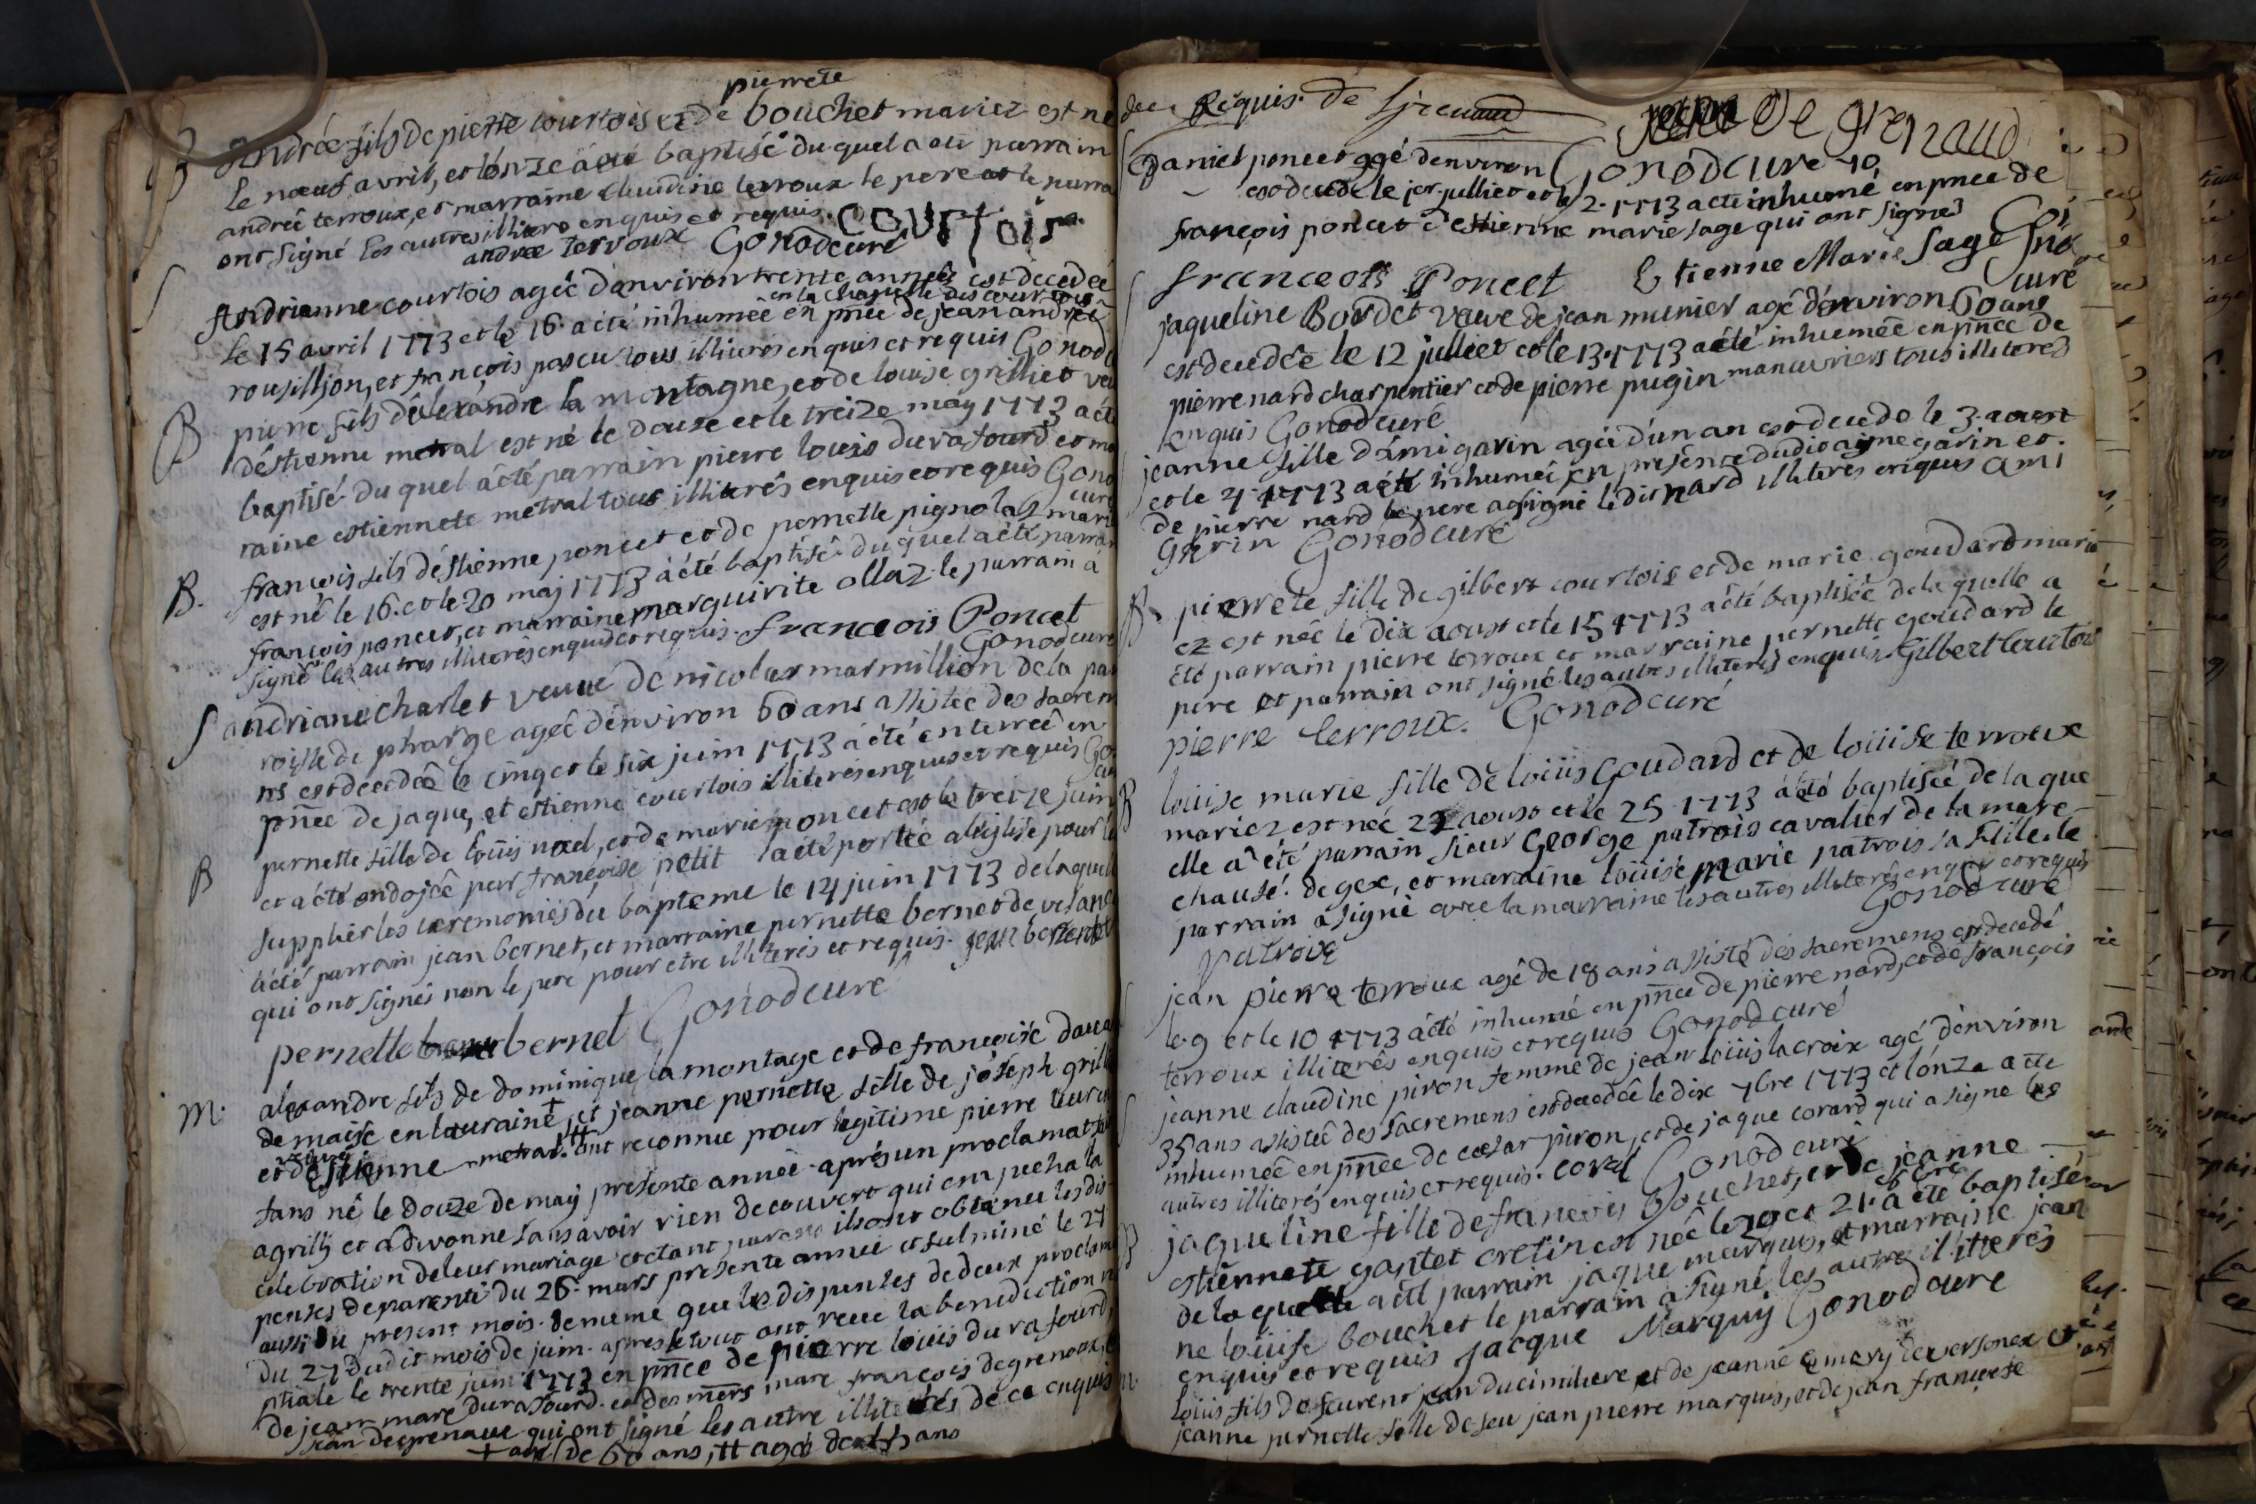 pierrete
B andrée fils de pierre courtois et de bouchet mariez est né
le neuf avril, et lonze a été baptisé du quel a été parrain
andré terroux, et marraine claudine terroux le pere et le parra
ont signé les autres illiteré enquis et requis. COURTOIS
andrée terroux Gonod curé
S Andrianne courtois agée denviron trente années est decedée
en la chapelle des courtois
le 15 avril 1773 et le 16 a été inhumée en pñce de jean andrée
rousillion, et françois pascu tous illiterés enquis et requis Gonod c
B pierre fils d'alexandre la montagne, et de louise grilliet veu
déstienne metral est né le douze et le treize may 1773 a été
baptisé du quel a été parrain pierre louis durafourd et ma
raine estiennete metral tous illiterés enquis et requis Gonod
curé
B. françois fils déstienne poncet et de pernette pignolas mari
est né le 16. et le 20 maj 1773 a été baptisé du quel a été parrai
françois poncet, et marraine marguirite ollaz. le parrain a
signé les autres illiterés enquis et requis. franceois Poncet
Gonod curé
S andriane charlet veuve de nicolas marmillion de la pa
roisse de pharge agée denviron 60 ans assistée des sacrem
ns est decedée le cinq et le six juin 1773 a été enterrée en
pñce de jaque, et estienne courtois illiterés enquis et requis Go
cu
B pernette fille de loüis nod, et de marie moncet est le treize juin
et a été ondojée par françoise petit a été portée a l'église pour la
supplier les ceremonies du bapteme le 14 juin 1773 de laquel
a été parrain jean bernet, et marraine pernette bernet de vesanc
qui ont signés non le pere pour etre illiterés et requis. jean bernet
pernette bernet Gonod curé
M. alexandre fils de dominique la montage et de françoise
de maise en louraine + et jeanne pernette fille de joseph grill
veuve
et destienne metral. tt ont reconnu pour legitime pierre leur en
fans né le douze de maÿ presente année. aprés un proclamation
a grilly et a divonne sans avoir rien decouvert qui empecha la
celebration de leur mariage et etant parens ils ont obtenu les dis
penses de parenté du 26. mars presente année et fulminé le 27
aussi du present mois. de meme que les dispenses de deux proclam
du 27 dudit mois de juin. apres le tout ont receu la benediction n
ptiale le trente juin 1773 en pñce de pierre louis durafourd,
de jean marc durafourd. et des mers marc françois degrenaux, et
jean degrenaux qui ont signé les autre illiterés de ce enquis
+ agé de 60 ans, tt agée de ans
Requis. De Grenaud De grenaud
S daniel poncet agé denviron Gonod cure 70
est decedé le jer. julliet et le 2. 1773 a ete inhumé en pnce de
françois poncet d'estienne marie sage qui ont signé
franceois Poncet Etienne Marie Sage Gno
curé
jaqueline Bordet vauve de jean munier agé d'environ 60 ans
est decedée le 12 julliet et le 13. 1773 a été inhumée en pnce de
pierre nard charpentier et de pierre pugin manuvriers tous illiterés
enquis Gonod curé
jeanne fille d'ami garin agée d'un an est decede le 3. aoust
et le 4. 1773 a été inhumée en présence dudit ayme garin et.
de pierre nard le pere a signé ledit nard illiteres enquis ami
garin Gonod curé
B pierrete fille de gilbert courtois et de marie goudard mari
ez est née le dix aoust et le 15 1773 a été baptisée de la quelle a
été parrain pierre terroux et marraine pernette goudard le
pere et parrain ont signé les autres illiterés enquis. Gilbert Courtois
pierre terroux. Gonod curé
B louise marie fille de loüis Goudard et de loüise terroux
mariez est née 22 aoust et le 25 1773 a été baptisée de la que
elle a été parrain sieur George patrois cavalier de la mare
chausé. de gex, et maraine louise marie patrois sa fille. le
parrain a signé avec la marraine les autres illiterés enquis et requis
patroix Gonod curé
jean pierre terroux agé de 18 ans assisté des sacremens est decedé
le 9 et le 10 1773 a été inhumé en pñce de pierre nard, et de françois
terroux illiterés enquis et requis Gonod curé
jeanne claudine piron femme de jean loüis lacroix agé d'environ
35 ans assistée des sacremens est decedée le dix 7bre 1773 et lonze a été
inhumée en pñce de cesar piron, et de jaque corard qui a signe les
autres illiterés enquis et requis. coral Gonod curé
B jaqueline fille de francois bouchet, et de jeanne
8bre
estiennete gantet cretin est née le 20 et 21. a été baptisée
de la quelle a été parrain jaque marquis, et marraine jean
ne loüise bouchet le parrain a signé les autre illitterés
enquis et requis Jacque Marquiÿ Gonod cure
m. loüis fils de laurent jean ducimitiere et de jeanne emery de versonex et
jeanne pernette fille de feu jean pierre marquis, et de jean françoise